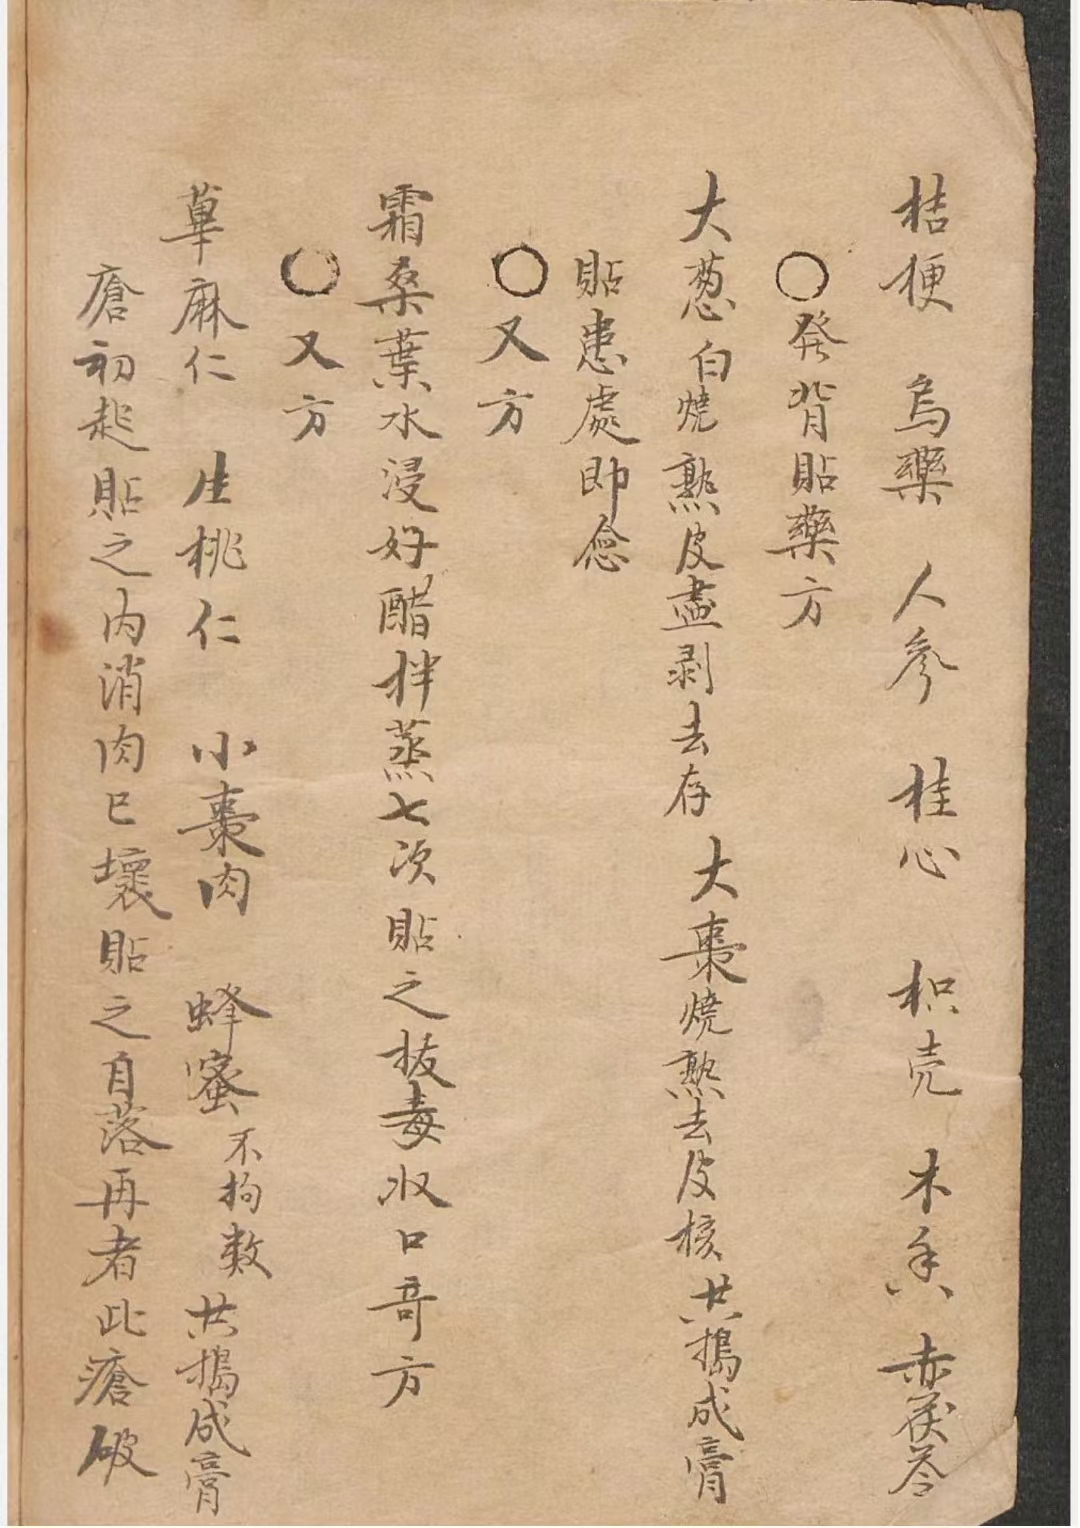 桔梗 烏藥 人參 桂心 枳壳 木香 赤茯苓
○發背貼藥方
大葱白燒熟皮盡剥去存 大棗燒熟去皮核共搗成膏
貼患處即愈
○又方
霜桑葉水浸好醋拌蒸七次貼之拔毒收口奇方
○又方
萆麻仁 生桃仁 小棗肉 蜂蜜不拘数共搗成膏
瘡初起貼之内消肉已壞貼之自落再者此瘡破